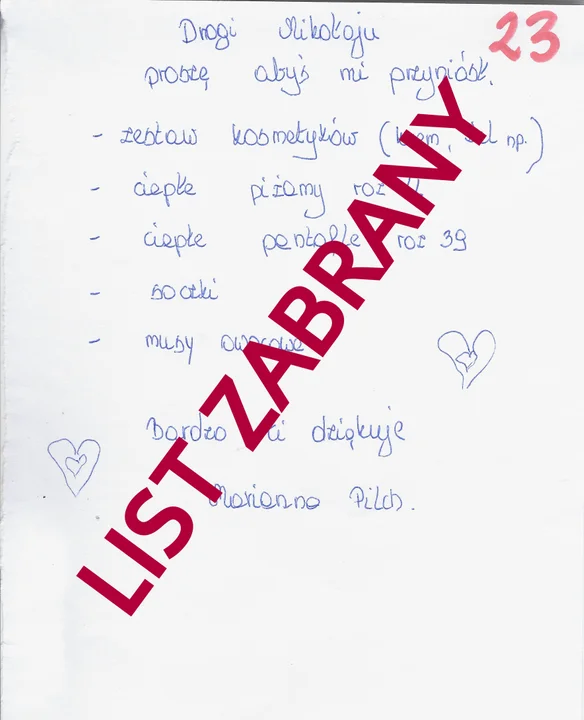 Drogi Mikołaju
23
proszę abyś mi przyniósł.
- zestaw kosmetyków (krem, żel np.)
- ciepłe piżamy roz
- ciepłe pantofle roz 39
- soczki
- musy owocowe
Bardzo Ci dziękuje
Marianna Pilch.
LIST ZABRANY